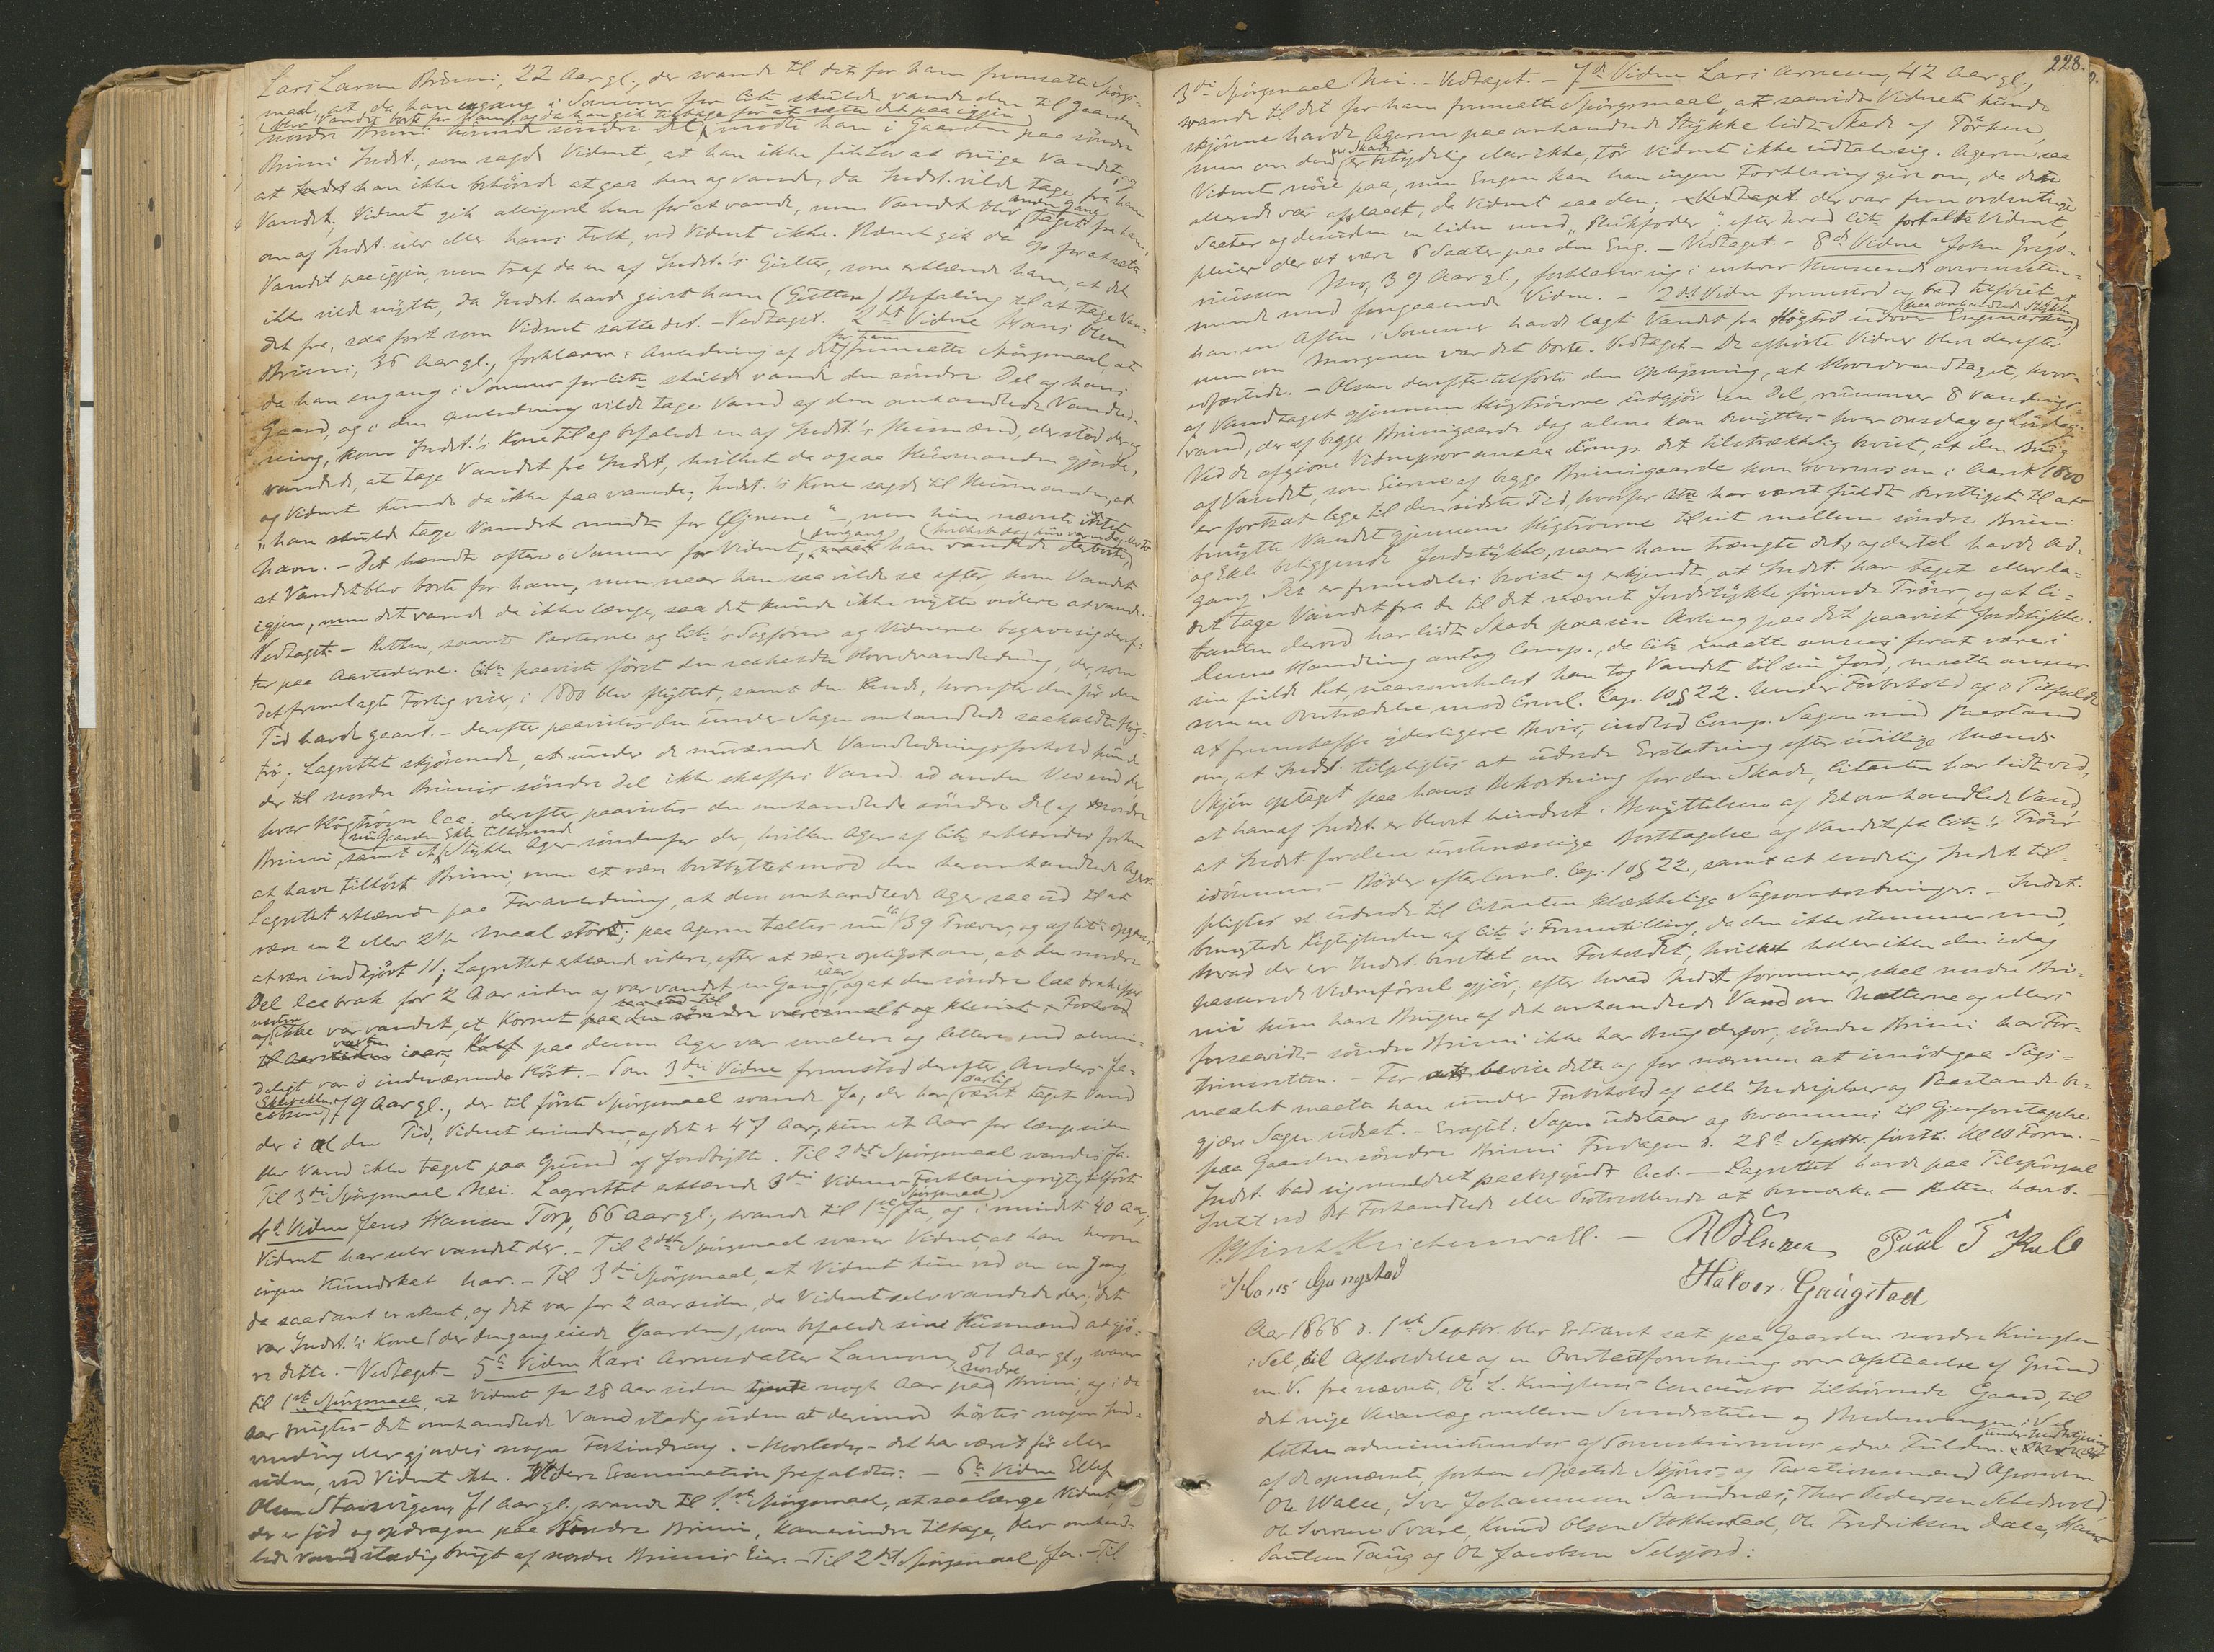 Lars Larsen Brimi, 22 Aar gl., der svarede til det for ham fremsatte Spörgs-
maal, at da han engang i Sommer for Citn skulde vande den til Gaarden
(blev Vandet borte for Ham, og da han gik tilbage for at sætte det paa igjen)
nordre Brimi hörende söndre Del, mödte ham i Gaarden paa söndre
Brimi Indst., som sagde Vidnet, at han ikke fik Lov at bruge Vandet, og
at han ikke behövde at gaa hen og vande, da Indst. vilde tage fra ham
Vandet; Vidnet gik alligevel hen for at vande, men Vandet blev anden Gang taget fra ham,
om af Indst. selv eller hans Folk, ved Vidnet ikke. Vidnet gik da op for at sætte
Vandet paa igjen, men traf da en af Indst.'s Gutter, som erklærede ham, at det
ikke vilde nytte, da Indst. havde givet ham (Gutten) Befaling til at tage Van-
det fra, saa fort som Vidnet satte det. - Vedtaget. 2det Vidne Hans Olsen
Brimi, 36 Aar gl., forklarer i Anledning af det for ham fremsatte Spörgsmaal, at
da han engang i Sommer for Citn skulde vande den söndre Del af hans
Gaard, og i den Anledning vilde tage Vand af den omhandlede Vandled-
ning, kom Indst.'s Kone til og befalede en af Indst.'s Husmænd, der stod der og
vandede, at tage Vandet fra Indst, hvilket da ogsaa Husmanden gjorde,
og Vidnet kunde da ikke faa vande; Indst.'s Kone sagde til Husmanden, at
"han skulde tage Vandet midt for Öjnene" -, men hun nævnte intet
Navn. - Det hændte oftere i Sommer for Vidnet, (engang) han vandede
at Vandet blev borte for ham, men naar han saa vilde se efter, kom Vandet
igjen, men det varede da ikke længe, saa det kunde ikke nytte videre at vande. -
Vedtaget. - Retten, samt Parterne og Citn's Sagförer og Vidnerne begave sig deref-
ter paa Aastederne. Citn paaviste först den saakaldte Hovedvandledning, der, som
det fremlagte Forlig viser, i 1800 blev flyttet, samt den Rende, hvorefter den för den
Tid havde gaaet. - Derefter paavistes den under Sagen omhandlede saakaldte Hög-
trö; Lagrettet skjönnede, at under de nuværende Vandledningsforhold kunde
der til nordre Brimis söndre Del ikke skaffes Vand ad anden Vei end der,
hvor Högtröen laa. Derefter paavistes den omhandlede söndre Del af nordre
(nu Gaarden Ekle tilhörende)
Brimi samt et Stykke Ager söndenfor der, hvilken Ager af Citn erklæredes forhen
at have tilhört Brimi, men at være bortbyttet mod den heromhandlede Ager.
Lagrettet erklærede paa Foranledning, at den omhandlede Ager saa ud til at
være en 2 eller 2½ Maal stort; paa Ageren taltes nu ca 39 Traver, og af Citn opgaves
at være indkjört 11; Lagrettet erklærede videre, efter at være oplyst om, at den nordre
Del laa brak for 2 Aar siden og var vandet en Gang iaar, og at den söndre laa brak ifjor
og næsten ikke var vandet, at Kornet
paa denne Ager var mindre og lettere end almin-
deligt var i indeværende Höst. - Som 3die Vidne fremstod derefter Anders Ja-
cobsen Eklesetteren, 79 Aar gl., der til förste Spörgsmaal svarede Ja, der har været aarlig taget Vand
der i al den Tid, Vidnet erindrer, og det er 47 Aar; kun et Aar for længe siden
blev Vand ikke taget paa Grund af Jordbrytte. Til 2det Spörgsmaal svaredes Ja.
Til 3die Spörgsmaal Nei. Lagrettet erklærede 3die Vidnes Forklaring rigtig tilfört.
4de Vidne Jens Hansen Torp, 66 Aar gl., svarede til 1ste Spörgsmaal Ja, og i mindst 40 Aar,
Vidnet har selv vandet der. - Til 2det Spörgsmaal svarer Vidnet, at han herom
ingen Kundskab har. - Til 3die Spörgsmaal, at Vidnet kun ved om en Gang,
da saadant er skeet, og det var for 2 Aar siden, da Vidnet selv vandede der; det
var Indst.'s Kone (der dengang eiede Gaarden), som befalede sine Husmænd at gjö-
re dette. - Vedtaget - 5te Vidne Kari Arnesdatter Lamoen, 51 Aar gl., svarer
til 1ste Spörgsmaal, at Vidnet for 28 Aar siden tjente nogle Aar paa nordre Brimi, og i de
Aar brugtes det omhandlede Vand stadig uden at derimod hörtes nogen Ind-
vending eller gjordes nogen Forhindring. - Hvorledes det har været för eller
siden, ved Vidnet ikke. Videre Examination frafaldtes. - 6te Vidne Ellef
Olsen Stavsvigen, 71 Aar gl., svarede til 1ste Spörgsmaal, at saalænge Vidnet,
der er föd og opdragen paa söndre Brimi, kan erindre tilbage, blev omhand-
lede Vand stadig brugt af nordre Brimis Eier. - Til 2det Spörgsmaal Ja. - Til
228.
3die Spörgsmaal Nei. - Vedtaget. - 7de Vidne Lars Arnesen, 42 Aar gl.,
svarede til det for ham fremsatte Spörgsmaal, at saavidt Vidnet kunde
skjönne havde Ageren paa omhandlede Stykke lidt Skade af Törken,
men om denne Skade er betydelig eller ikke, tör Vidnet ikke udtale sig. Ageren saa
Vidnet nöie paa, men Engen kan han ingen Forklaring give om, da den
allerede var afslaaet, da Vidnet saa den; der var fem ordentlige
Saater og desuden en liden med "Rukfoder"; efter hvad Citn fortalte Vidnet,
pleier der at være 6 Saater paa den Eng. - Vedtaget. - 8de Vidne John Grego-
riussen Mo, 39 Aar gl., forklarer sig i enhver Henseende overensstem-
mende med foregaaende Vidne. - 2det Vidne fremstod og bad tilföiet, at
han en Aften i Sommer havde lagt Vandet fra Högtrö udover Engmarken (paa omhandlede Stykke)
men om Morgenen var det borte. Vedtaget - De afhörte Vidner bleve derefter
edfæstede. - Olsen derefter tilförte den Oplysning, at Hovedvandtaget, hvor-
af Vandtaget gjennem Högtröerne udgjör en Del, rummer 8 Vandings-
vand, der af begge Brimigaarde dog alene kan benyttes hver Onsdag og Löverdag.
Ved de afgivne Vidneprov ansaa Comp. det tilstrækkelig bevist, at den Brug
af Vandet, som Eierne af begge Brimigaarde kom overens om i Aaret 1800
er fortsat lige til den sidste Tid, hvorfor Citn har været fuldt berettiget til at
benytte Vandet gjennem Högtröerne til sit mellem söndre Brimi
og Ekle beliggende Jordstykke, naar han trængte det, og dertil havde Ad-
gang. Det er fremdeles bevist og erkjendt, at Indst. har taget eller la-
det tage Vandet fra de til det nævnte Jordstykke förende Tröer, og at Ci-
tanten derved har lidt Skade paa sin Avling paa det paaviste Jordstykke.
Denne Handling antog Comp., da Citn maatte ansees for at være i
sin fulde Ret, naarsomhelst han tog Vandet til sin Jord, maatte ansees
som en Overtrædelse mod Criml. Cap. 10 § 22. Under Forbehold af i Tilfælde
at fremskaffe yderligere Bevis, indlod Comp. Sagen med Paastand
om, at Indst. tilpligtes at udrede Erstatning efter uvillige Mænds
Skjön optaget paa hans Bekostning for den Skade, Citanten har lidt ved,
at han af Indst. er blevet hindret i Benyttelsen af det omhandlede Vand,
at Indst. for den uretmæssige Borttagelse af Vandet fra Citn's Tröer
idömmes Böder efter Criml. Cap. 10 § 22, samt at endelig Indst. til-
pligtes at udrede til Citanten klækkelige Sagsomkostninger. - Indst.
benegtede Rigtigheden af Citn's Fremstilling, da den ikke stemmer med,
hvad der er Indst. berettet om Forholdet, hvilket heller ikke den idag
passerede Vidneförsel gjör; efter hvad Indst formener, skal nordre Bri-
mi kun have Brugen af det omhandlede Vand om Nætterne og ellers
forsaavidt söndre Brimi ikke har Brug derfor; söndre Brimi har For-
trinsretten. - For at bevise dette og for nærmere at imödegaa Sögs-
maalet maatte han under Forbehold af alle Indsigelser og Paastande be-
gjære Sagen udsat. - Eragtet: Sagen udstaar og berammes til Gjenforetagelse
paa Gaarden söndre Brimi Fredagen d. 28de Septbr. förstk. Kl. 10 Form. -
Indst. bad sig meddelt paabegyndt Act. - Lagrettet havde paa Tilspörgsel
Intet ved det Forhandlede eller Protocollerede at bemærke. - Retten hævet.
R Olsen Paul T Kule
Hans Gangstad Halvor Gaugstad
Aar 1866 d. 1ste Septbr. blev Extraret sat paa Gaarden nordre Kringlen
i Sel, til Afholdelse af en Overtaxtforretning over Afstaaelse af Grund
m. V. fra nævnte, Ole L. Kringlens Concursbo tilhörende Gaard, til
det nye Veianlæg mellem Sundstuen og Bredevangen i Sel.
Retten administreredes af Sorenskriveren
af de opnævnte, forhen edfæstede Skjöns- og Taxationsmænd Agronom
Ole Walle, Iver Johannesen Sandnæs, Thor Pedersen Selsvold,
Ole Iversen Svare, Knud Olsen Stokkestad, Ole Fredriksen Dale, Hans
Paulsen Taug og Ole Jacobsen Selsjord: